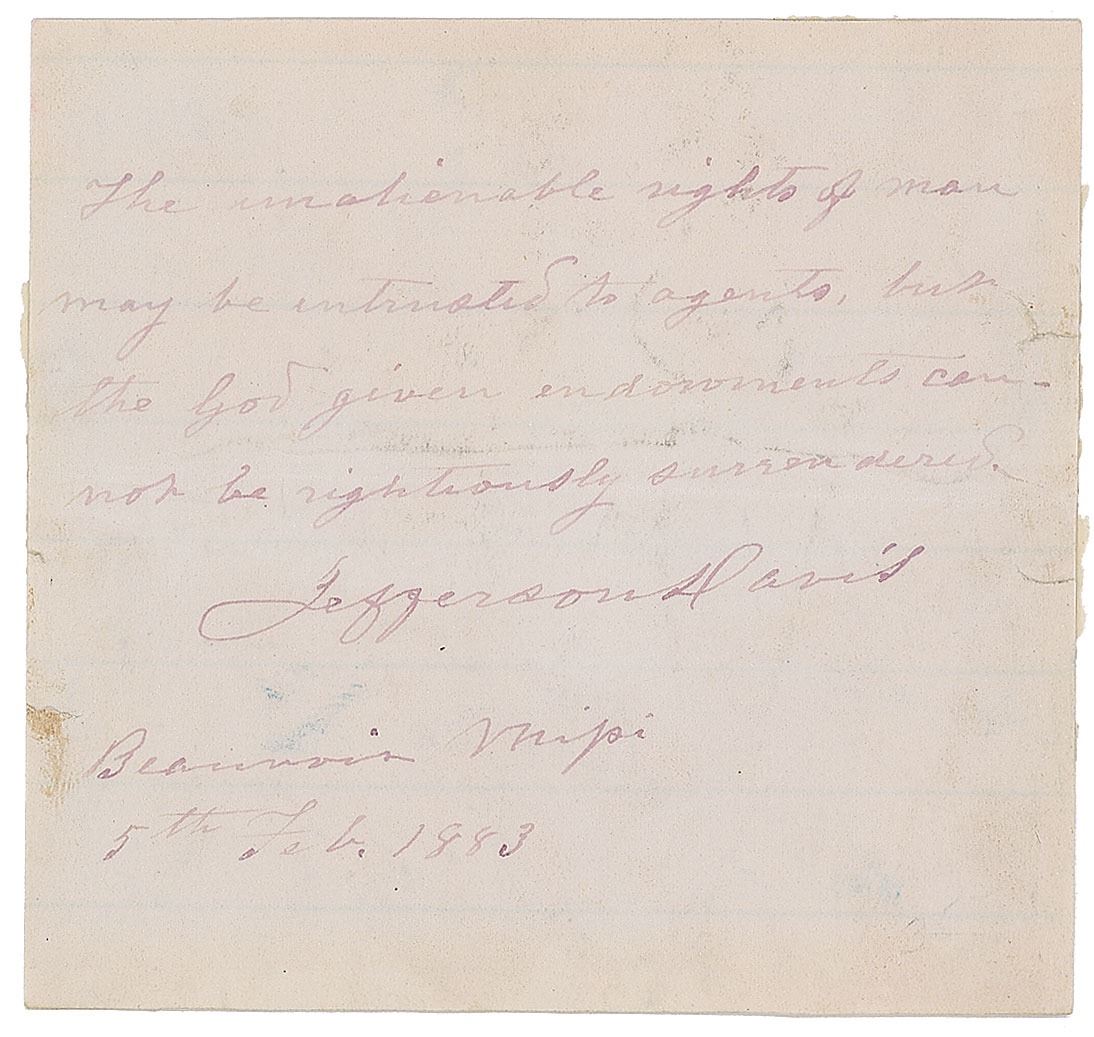 The unalienable rights of man
may be intrusted to agents, but
the God given endowments can-
not be rightiously surrendered.
Jefferson Davis
Beauvoir Missipi
5th Feb. 1883